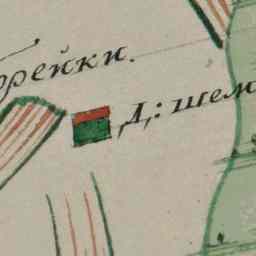 орейки.
Д: шем